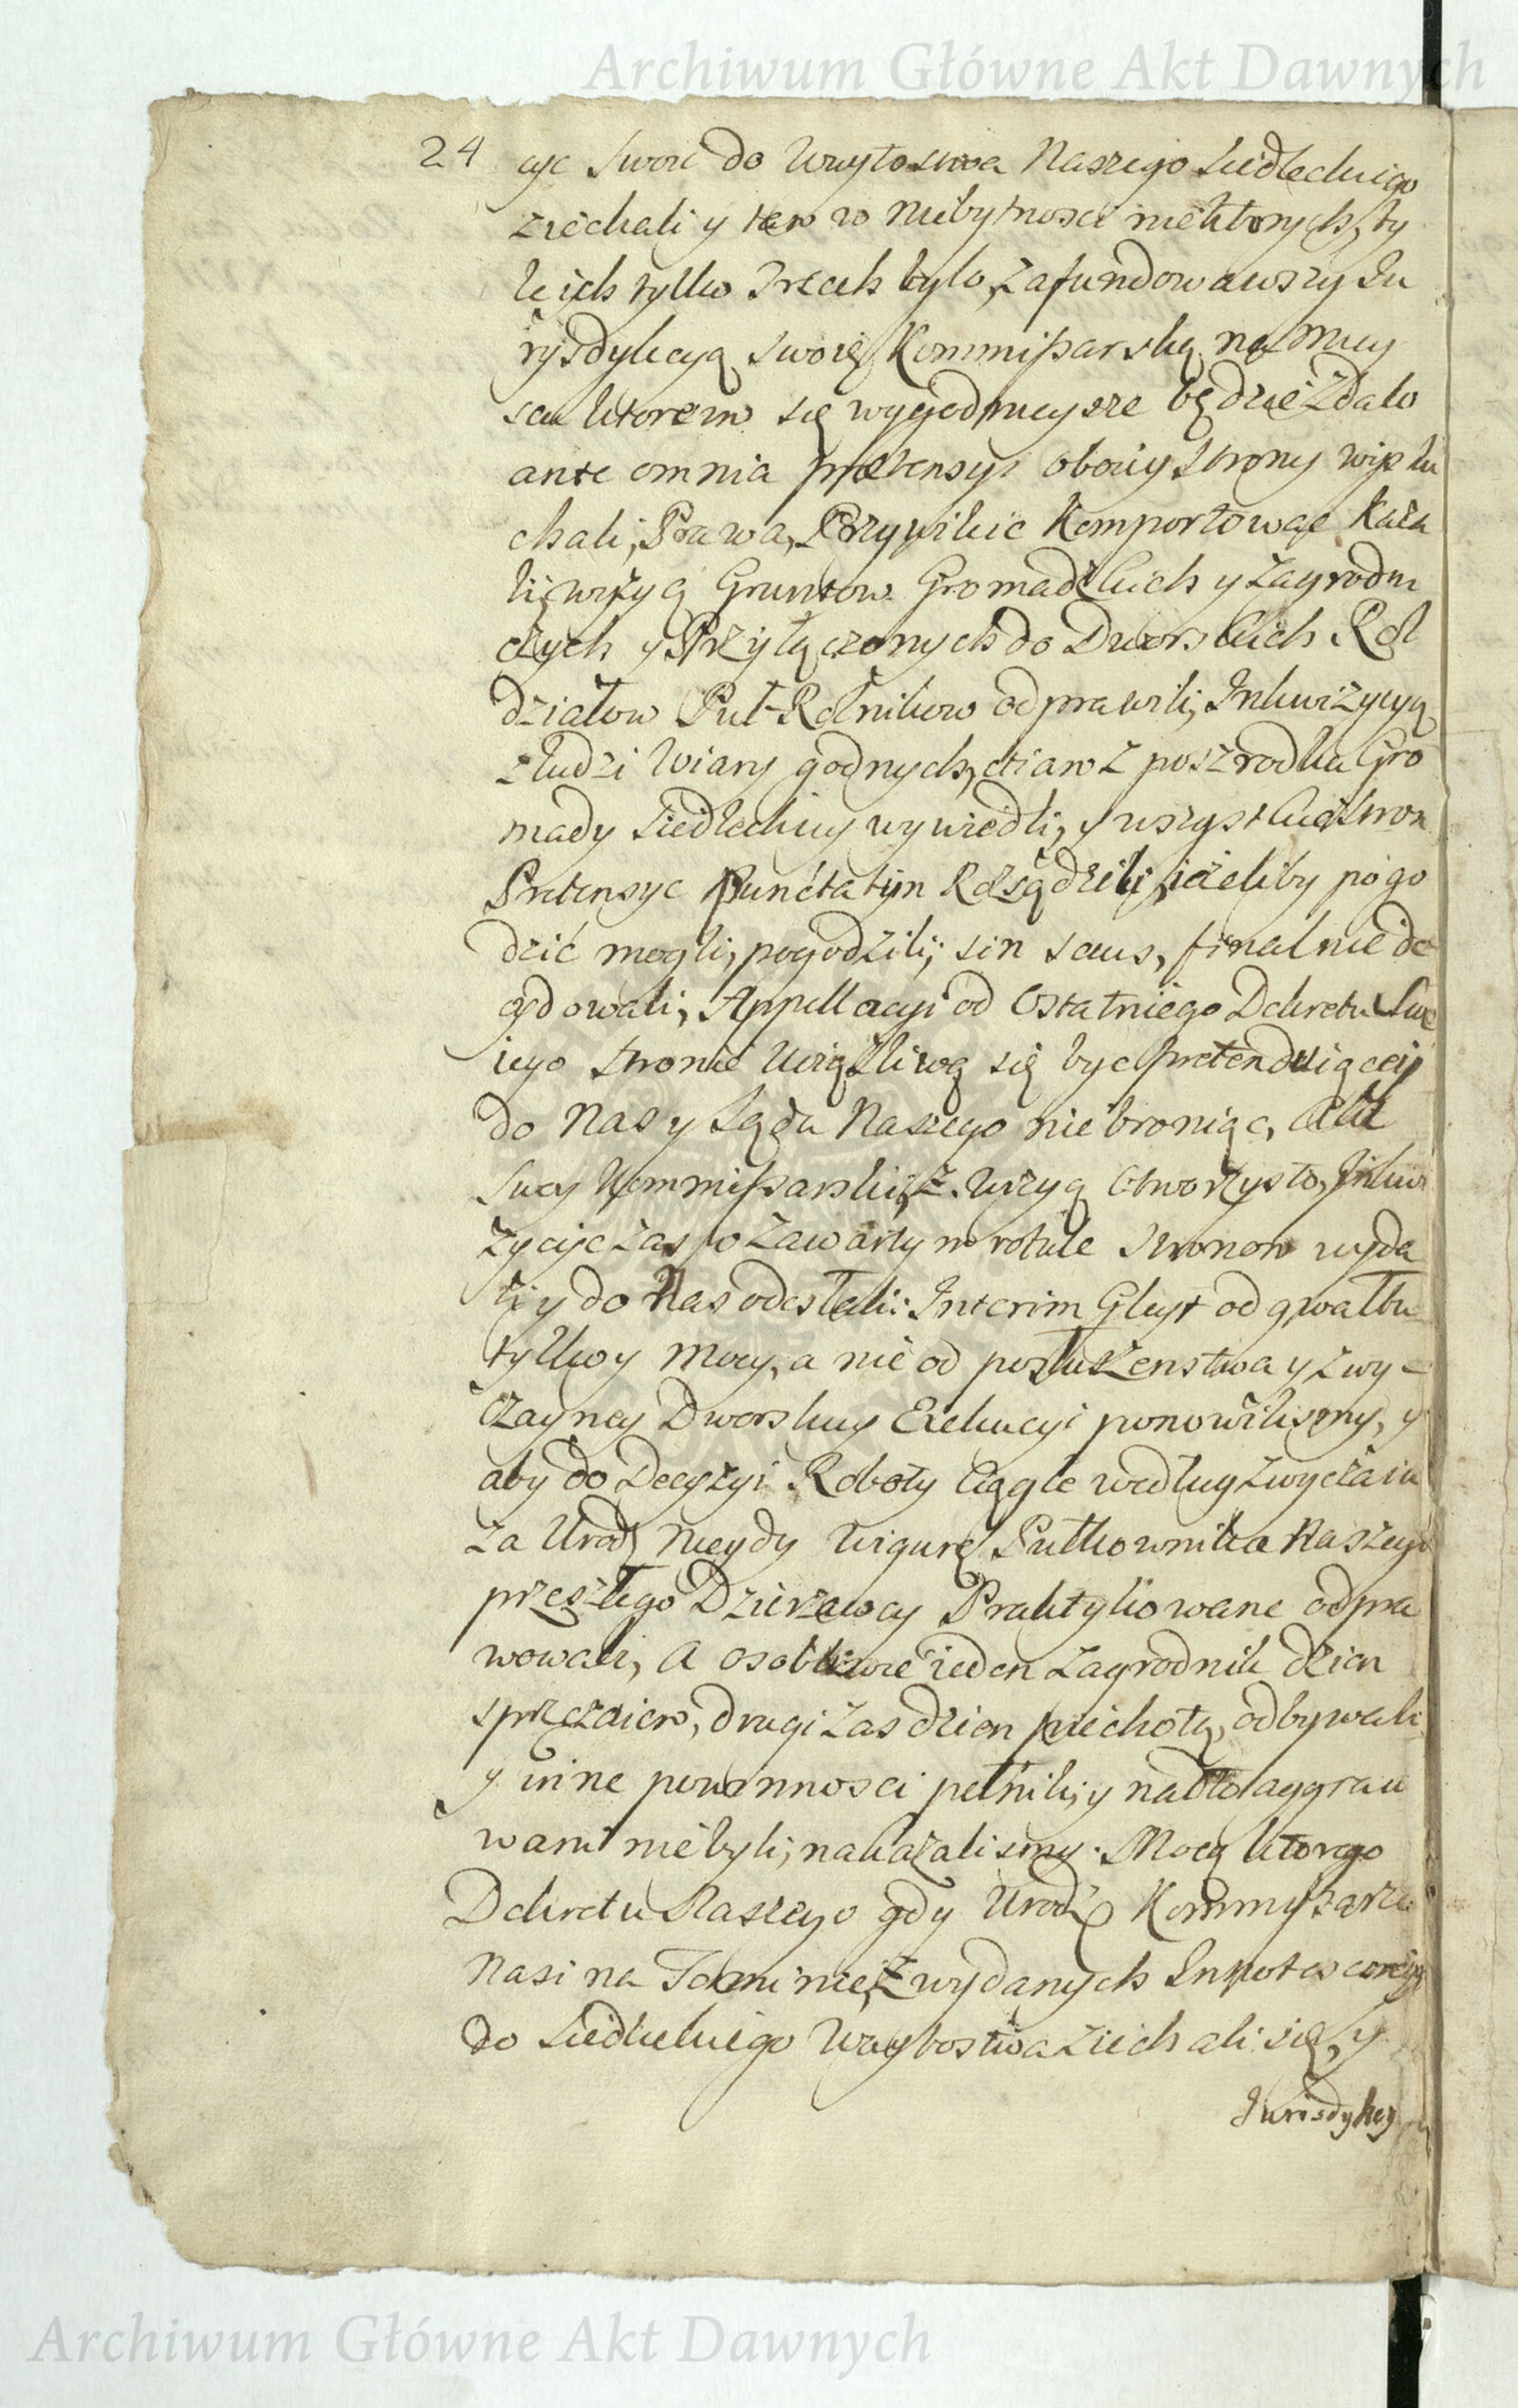 Archiwum Główne Akt Dawnych
24
cye swoie do Woytostwa Naszego Siedleckiego
ziechali y tam w niebytnosci niektorych, by
le ich tylko Trzech bylo, zafundowawszy Iu
rysdykcyą swoię Kommißarską na miey
scu ktorem się wygodnieysze będzie zdało
ante omnia pretensyi oboiey strony wysłu
chali, Prawa, Przywileie komportowac kaza
li, wizyą Gruntow Gromadzkich y zagrodni
czych y Przyłączonych do Dworskich Rol
działow Puł-Rolnikow odprawili, Inkwizycyą
z ludzi wiary godnych, etiam z poszrodka Gro
mady Siedleckiey wywiedli, y wszystkie stron
Pretensye punctatim Rozsądzili, ieżeliby pogo
dzić mogli, pogodzili, sin secus, finalnie de
cydowali, Appellacyi od Ostatniego Dekretu Swe
iego stronie uciążliwą się byc pretenduiącey
do Nas y Sądu Naszego nie broniąc, Akt
swey Kommißarski, z wizyą otworzysto, Inkwi
zycye zas po zawarty m rotule stronom wyda
li y do Nas odesłali: Interim Gleyt od gwałtu
tylko y mocy, a nie od posłuszenstwa y zwy-
czayney Dworskiey Exekucyi ponowilismy, y
aby do Decyzyi Roboty ciągłe według zwyczaiu
za Urodz niegdy Wigurę Pułkownika Naszego
przeszłego Dzierzawcy Praktykowane odpra
wowali, A osobliwie ieden zagrodnik dzien
sprzęzaiem, drugi zas dzien piechotą, odbywali
y inne powinnosci pełnili, y nadto aggrau
wani nie byli, nakazalismy. Mocą ktorego
Dekretu Naszego gdy Urodz Kommyßarze
Nasi na Terminie z wydanych Innotescencyi
do Siedleckiego Woytostwa ziechali się, y
Iurisdykcyą
Archiwum Główne Akt Dawnych